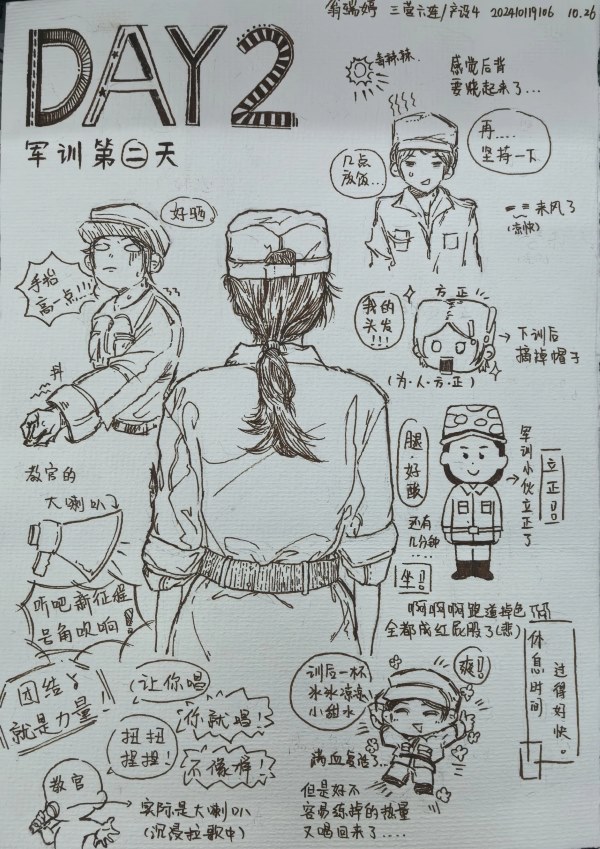 翁瑞婷 三营六连/产设4 20241019106 10.26
DAY2
军训第二天
毒辣辣
感觉后背
要烧起来了...
几点
放饭...
再....
坚持一下
来风了
(凉快)
好晒
手抬
高一点!!!
抖
我的
头发
!!!
方正
(为·人·方·正)
下训后
摘掉帽子
腿好酸
还有
几分钟
....
坐!!
军训小伙立正了
立正!!
教官的
大喇叭
听吧新征程
号角吹响!
啊啊啊跑道掉色啊
全都成红屁股了(悲)
休息时间
过得好快。
团结
就是力量
让你唱
你就唱!
扭扭
捏捏!
不像样!
教官
实际是大喇叭
(沉浸拉歌中)
训后一杯
冰冰凉凉
小甜水
爽!!
满血复活了...
但是好不
容易练掉的热量
又喝回来了....